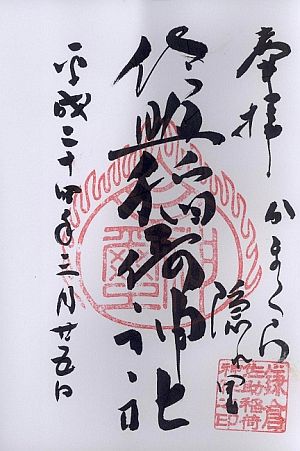 奉拝
かまくら
隠れ里
佐助稲荷神社
平成二十四年三月廿五日
鎌倉
佐助稲荷
神社之印